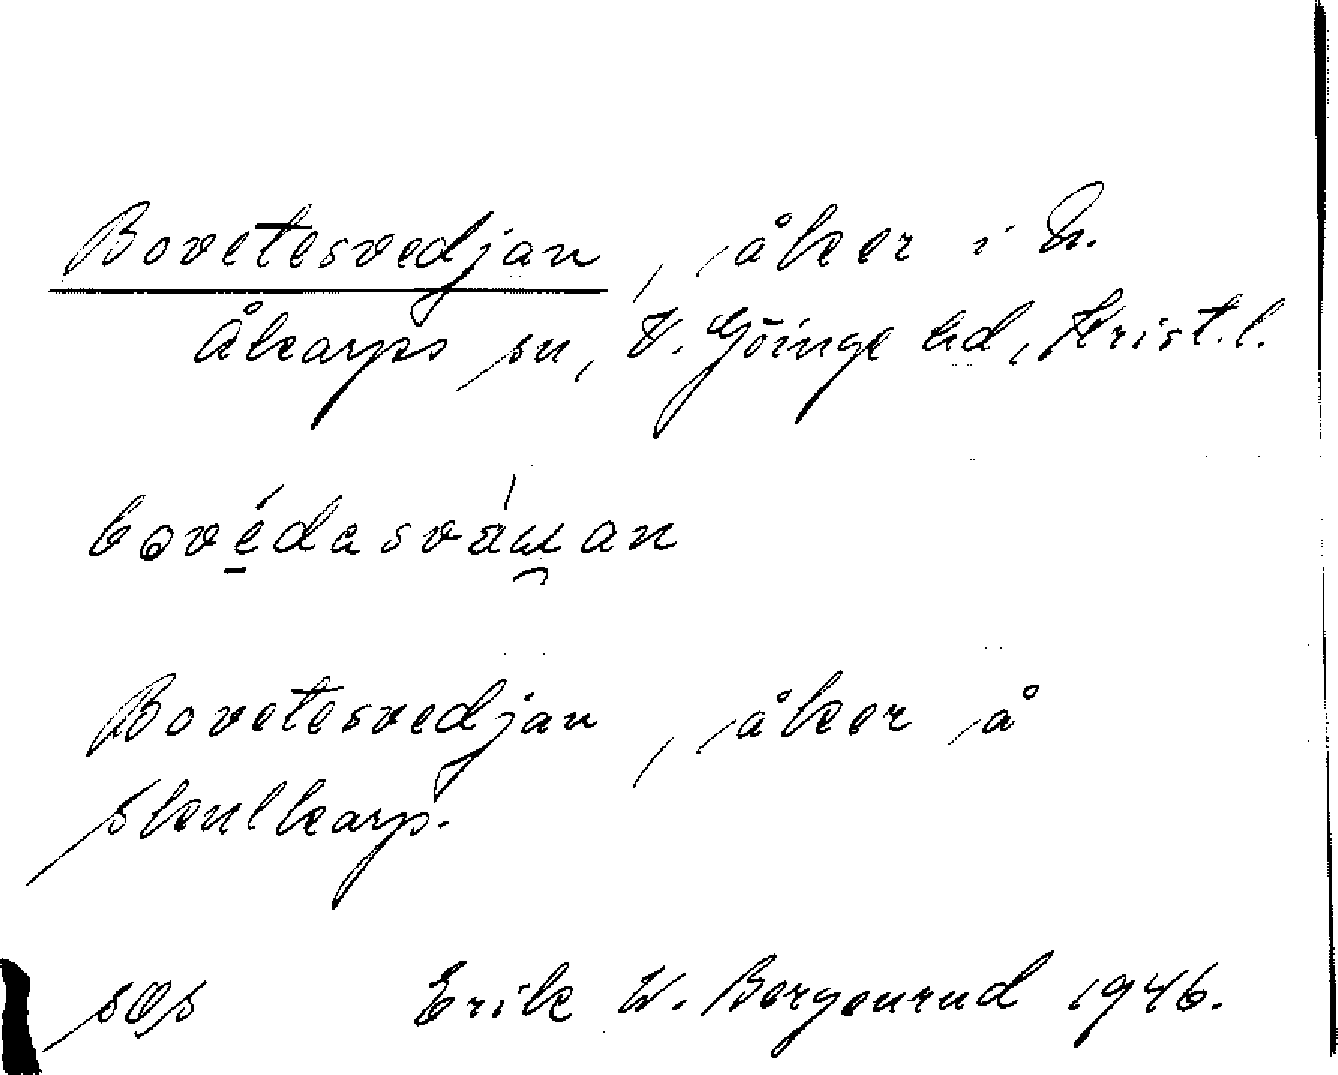 Bovetesvedjan, åker i N.
Åkarps sn, V. Göinge hd, Krist. l.
Bovetesvedjan, åker å
Skulkarp.
Erik W. Bergenrud 1946.